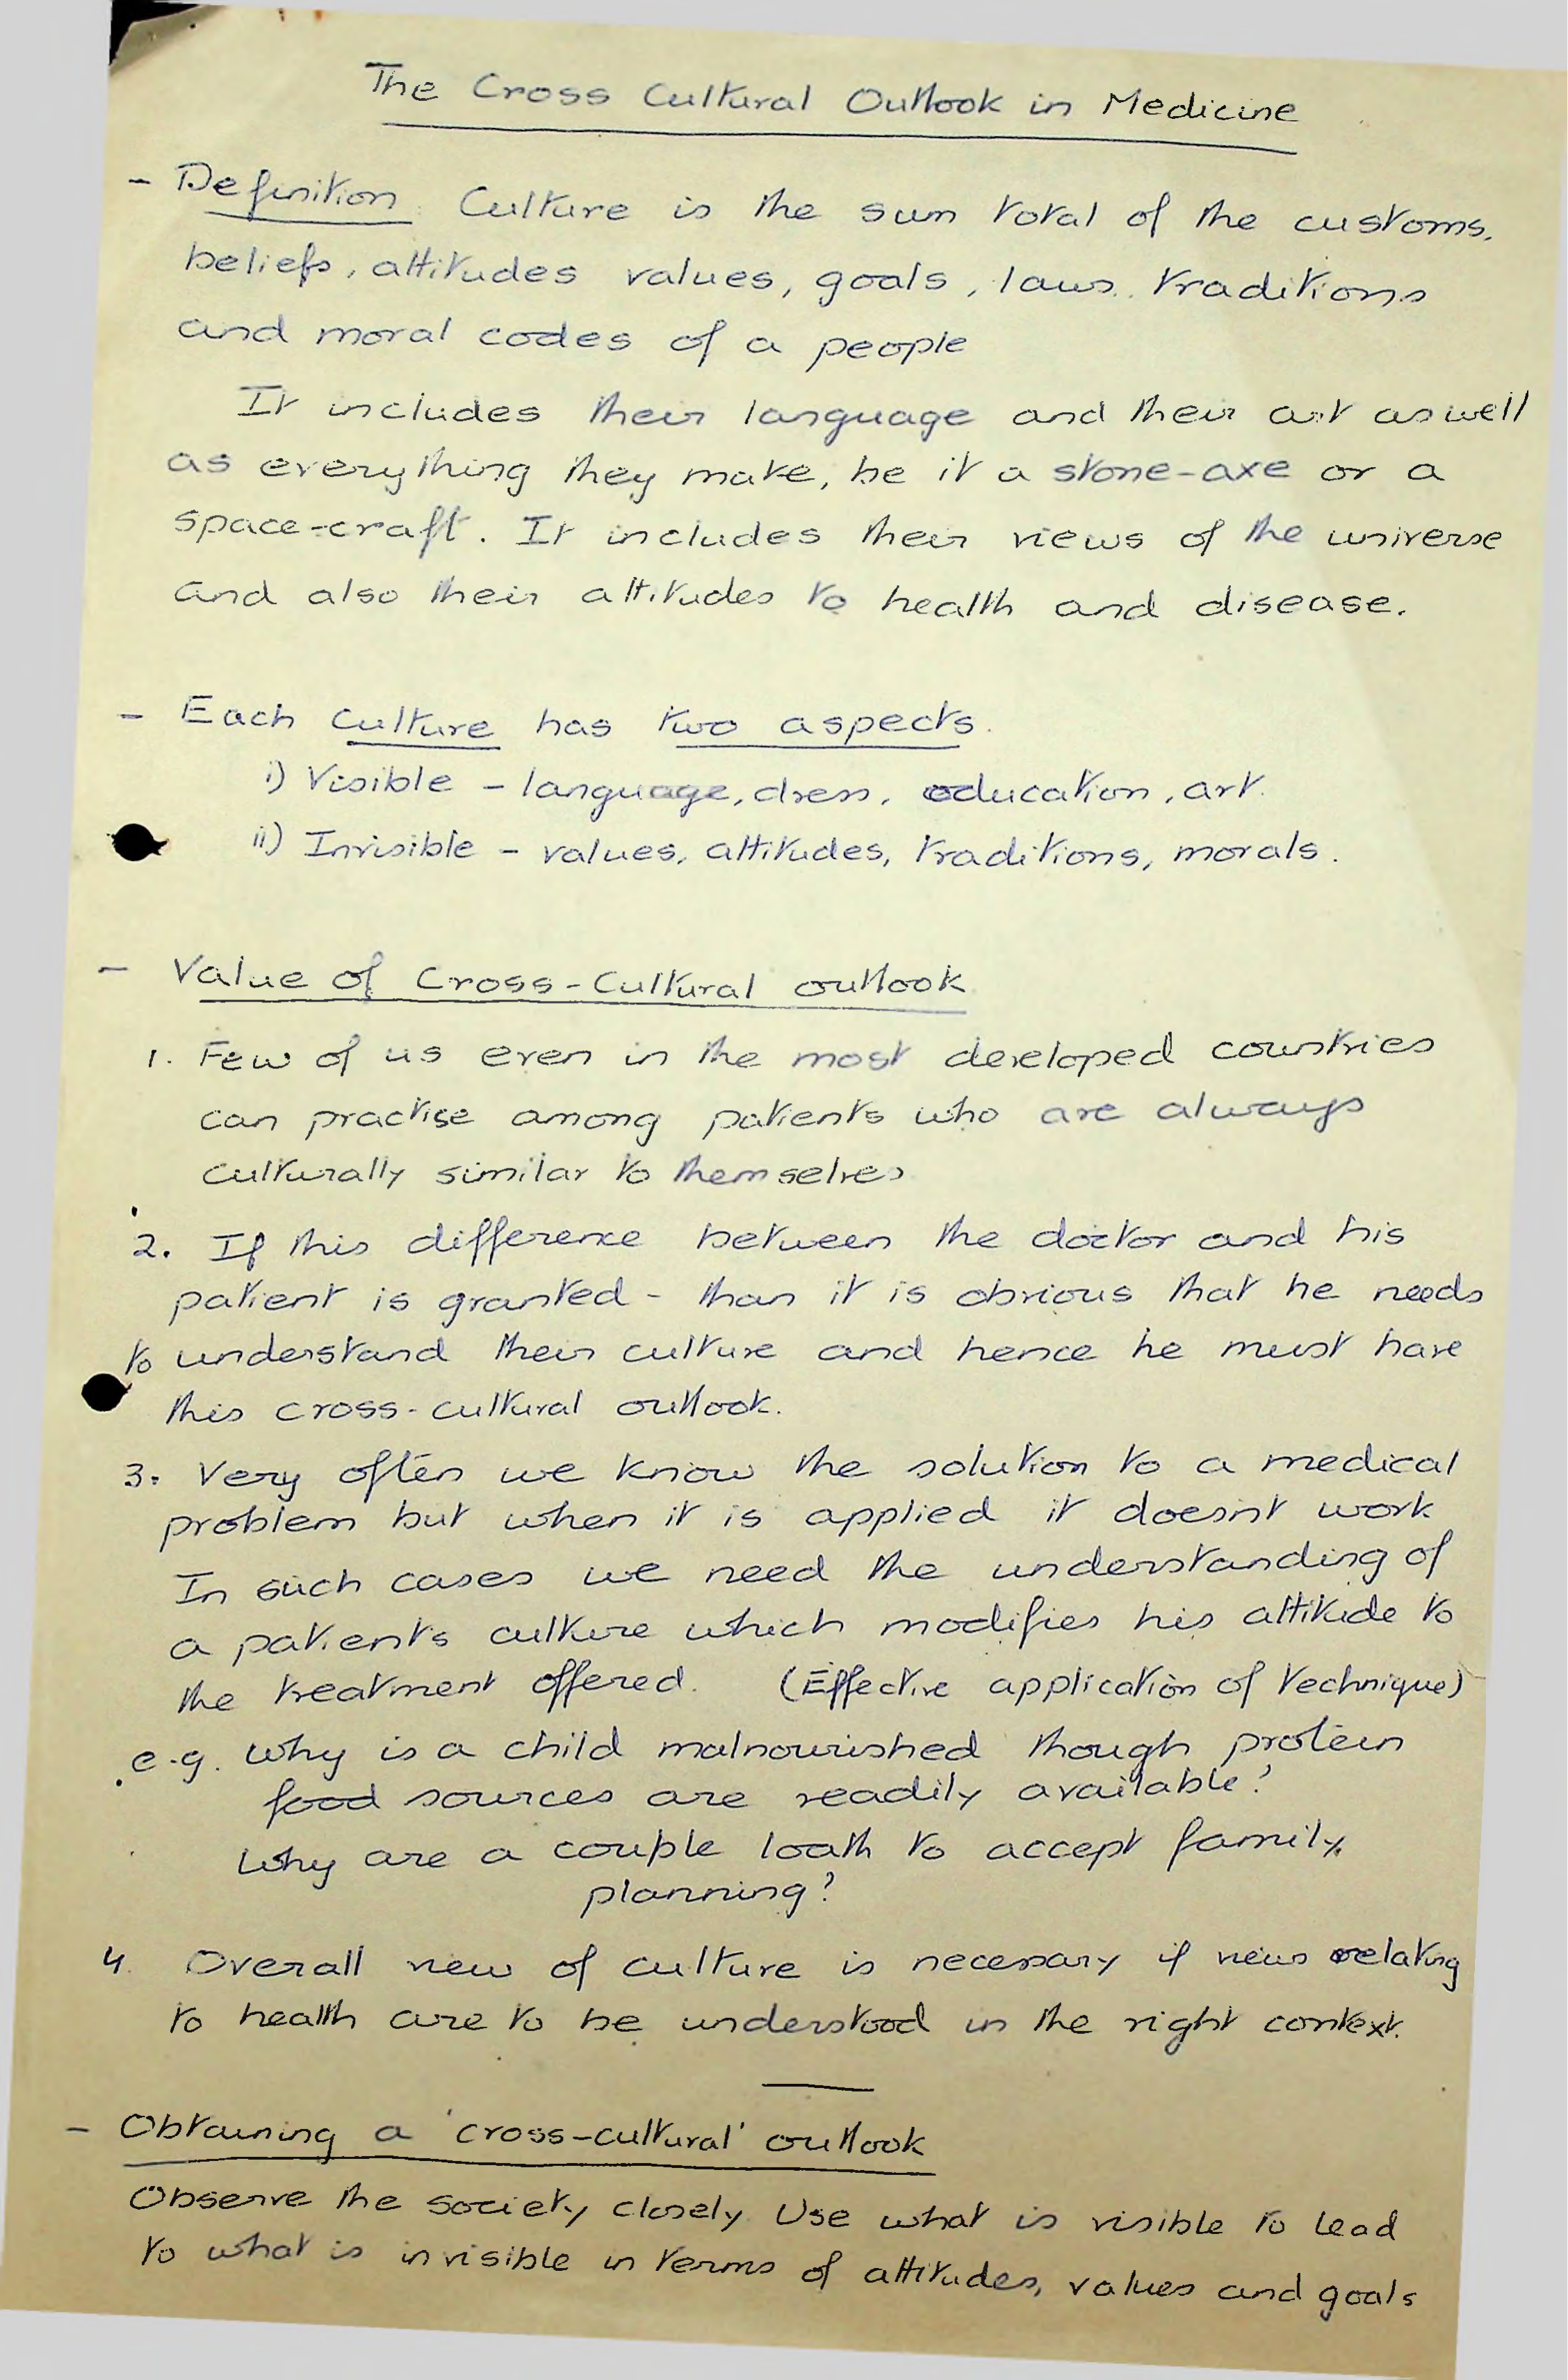 The Cross Cultural Outlook in Medicine
- Definition. Culture is the sum total of the customs,
beliefs, attitudes values, goals, laws, traditions
and moral codes of a people
It includes their language and their art as well
as everything they make, be it a stone-axe or a
space-craft. It includes their views of the universe
and also their attitudes to health and disease.
- Each culture has two aspects.
i) Visible - language, dress, education, art.
ii) Invisible - values, attitudes, traditions, morals.
- Value of Cross-Cultural outlook
1. Few of us even in the most developed countries
can practise among patients who are always
culturally similar to themselves
2. If this difference between the doctor and his
patient is granted - than it is obvious that he needs
to understand their culture and hence he must have
this cross-cultural outlook.
3. Very often we know the solution to a medical
problem but when it is applied it doesn't work
In such cases we need the understanding of
a patient's culture which modifies his attitude to
the treatment offered. (Effective application of technique)
e.g. Why is a child malnourished though protein
food sources are readily available?
Why are a couple loath to accept family
planning?
4. Overall view of culture is necessary if views relating
to health are to be understood in the right context.
- Obtaining a 'cross-cultural' outlook
Observe the society closely Use what is visible to lead
to what is invisible in terms of attitudes, values and goals